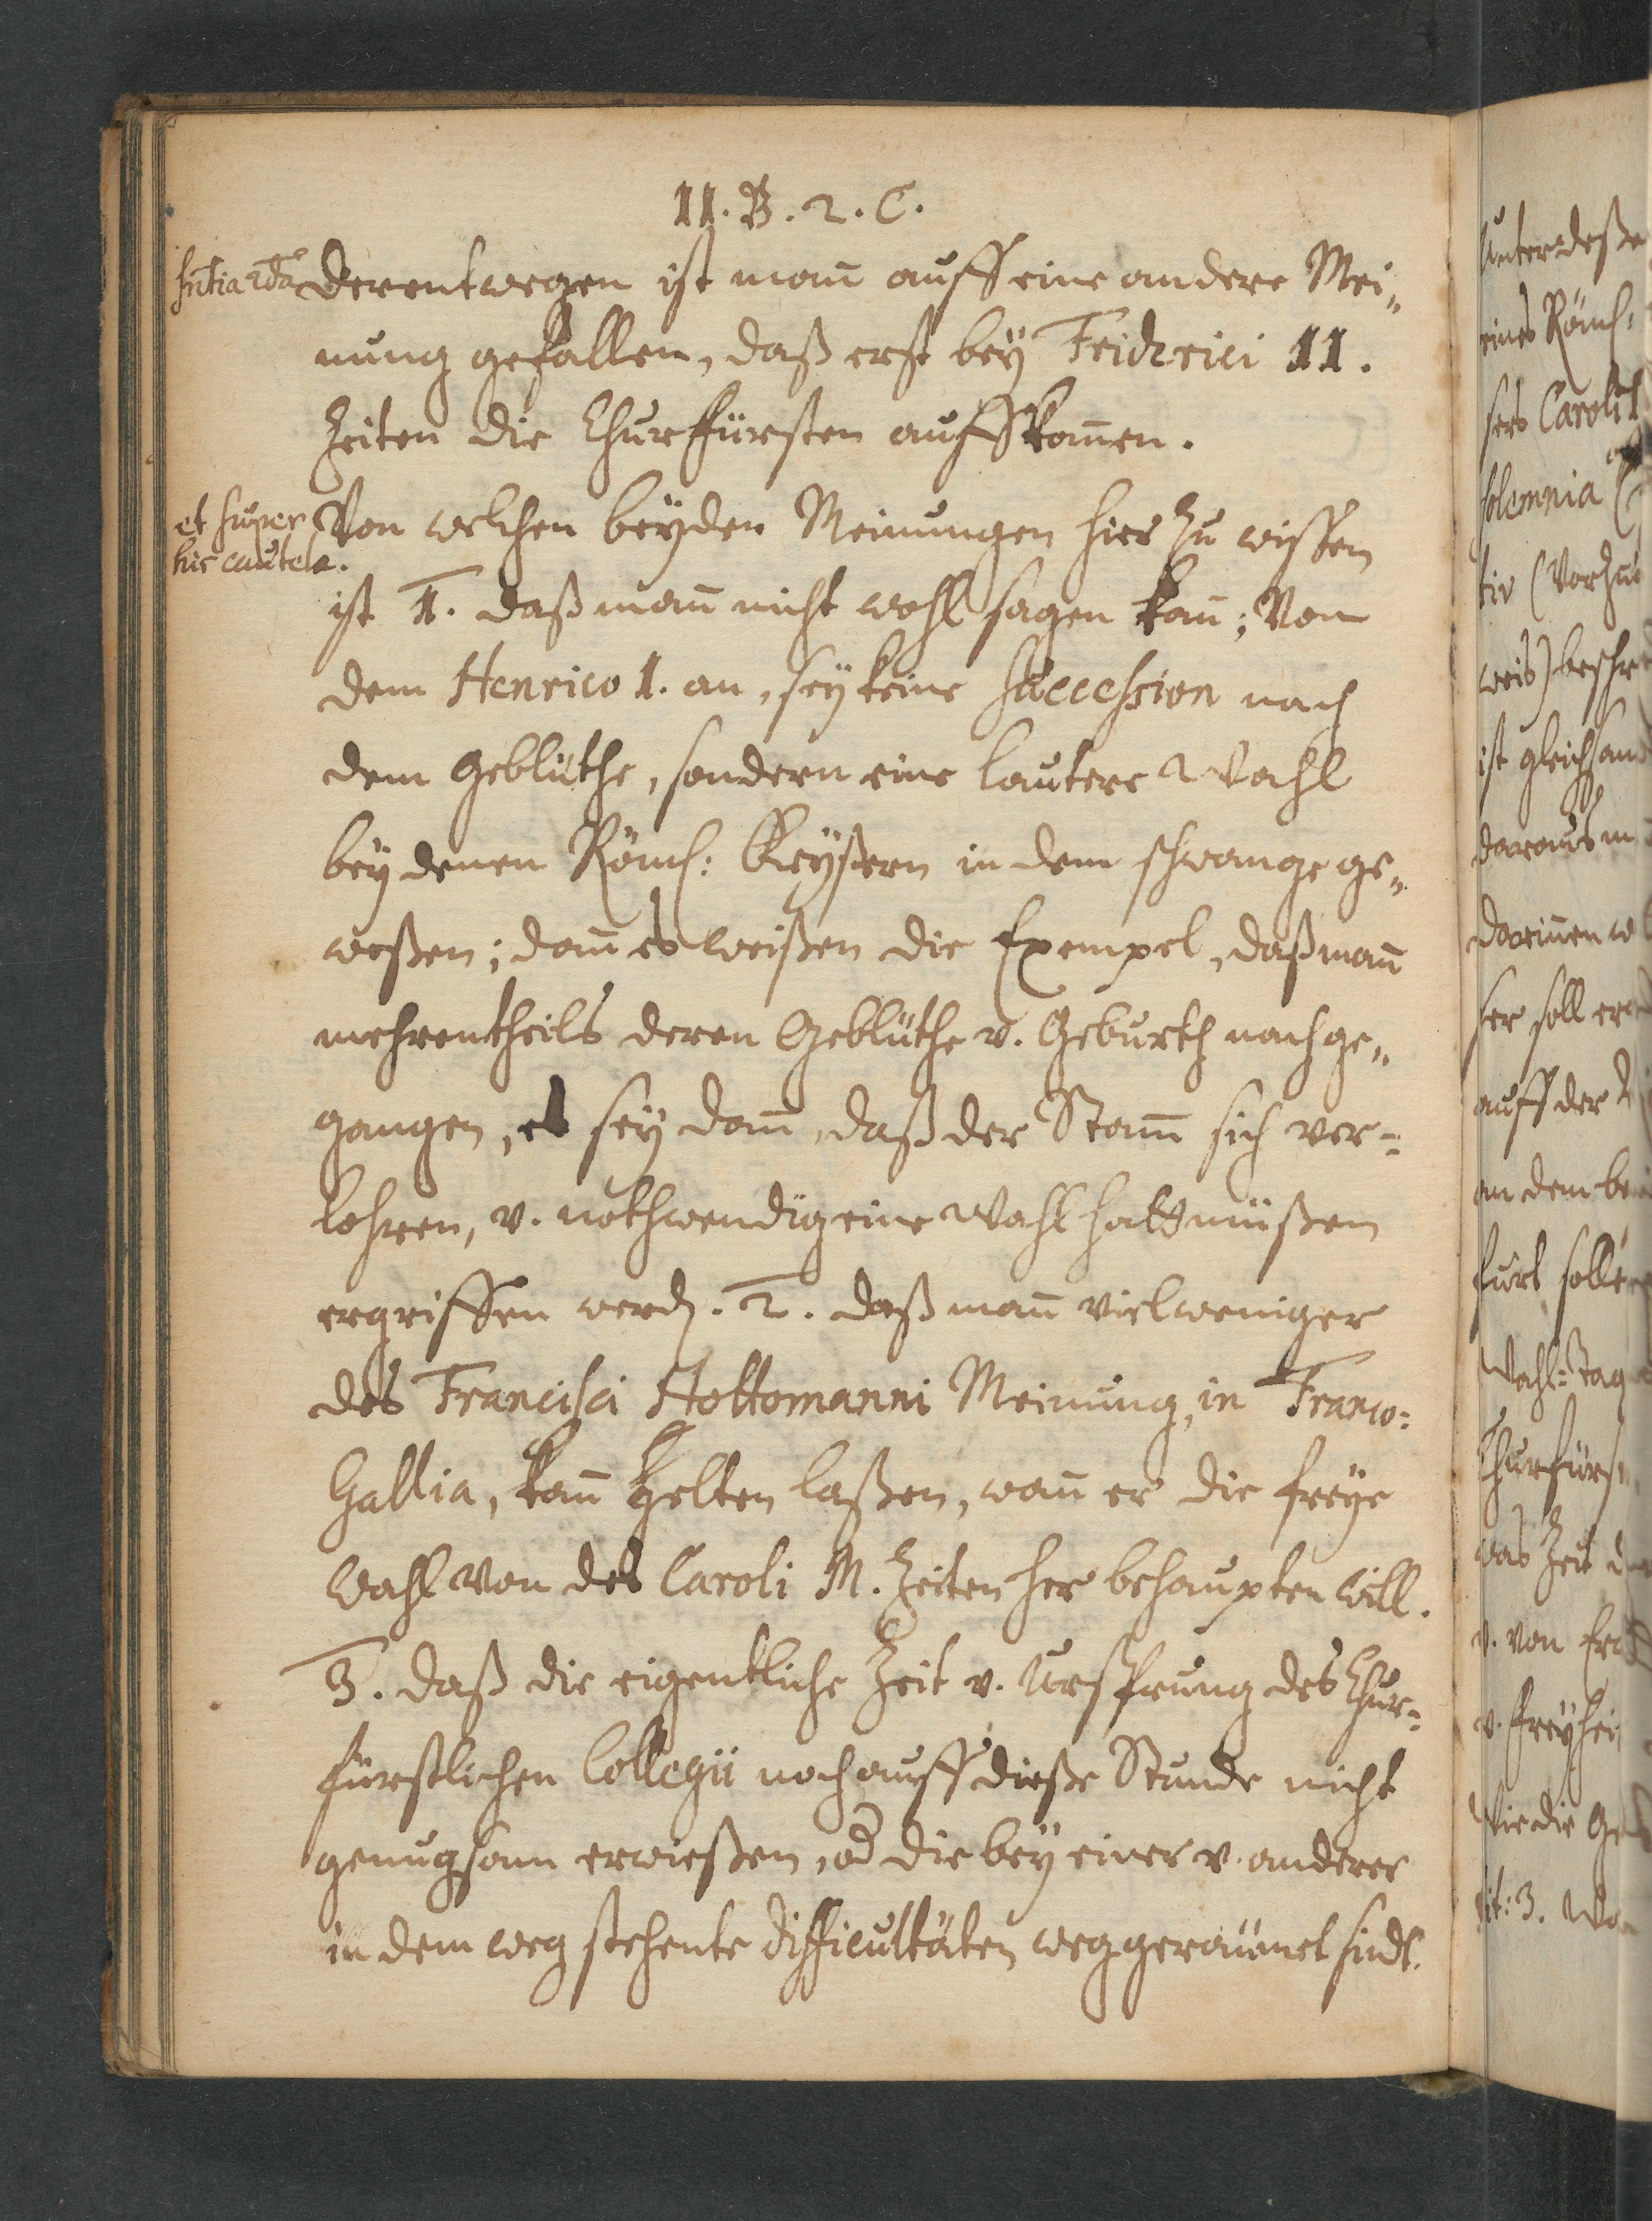 II. B. 2. C.
sn̄tia 2da
Derentwegen ist man̄ auff eine andere Mei„
nung gefallen, daß erst bey Friderici II.
Zeiten die Churfürsten auffkom̄en.
et super
hic cautela.
Von welchen beyden Meinungen hier zu wissen
ist 1. daß man̄ nicht wohl sagen kan̄; Von
dem Henrico I. an, sey keine Succession nach
dem Geblüthe, sondern eine lautere Wahl
bey denen Röm: Keyßern in dem schwange ge„
weßen; dan̄ es weißen die Exempel, daß man̄
mehrentheils deren Geblüthe v. Geburth nachge„
gangen, es sey dan̄, daß der Stam̄ sich ver=
lohren, v. nothwendig eine Wahl hatt müßen
ergriffen werd. 2. daß man̄ vielweniger
des Francisci Hottomanni Meinung, in Franco=
Gallia, kan̄ gelten laßen, wan̄ er die freye
Wahl von des Caroli M. Zeiten her behaupten will.
3. daß die eigentliche Zeit v. Ursprung des Chur=
fürstlichen Collegii noch auff dieße Stunde nicht
genugsam erwießen, od die bey einer v. anderer
in dem weg stehente difficultäten weggeräumet sindt.
Unterdeße
eines Röm:
sers Caroli
solemnia
tiv (Vorzu
weis) beschr
ist gleichsam
daraus m
darin̄en w
ser soll er
auff der
an dem be
furt solle
Wahl=Tag
Churfürs
was Zeit
v. von Er
v. freyhei
Wie die Ge
tit: 3. Wo